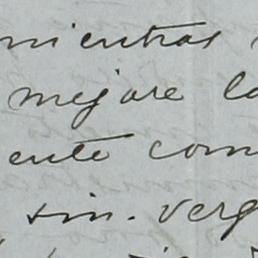 mientras
mejore la
ente com
sin. verg